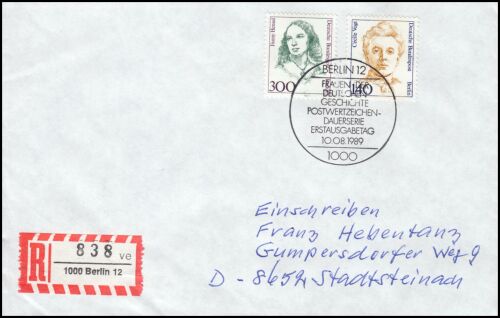 Fanny Hensel
Deutsche Bundespost Berlin
300
Cécile Vogt
Deutsche Bundespost Berlin
140
BERLIN 12
FRAUEN DER
DEUTSCHEN
GESCHICHTE
POSTWERTZEICHEN-
DAUERSERIE
ERSTAUSGABETAG
10.08.1989
1000
Einschreiben
Franz Hebentanz
Gumpersdorfer Weg 9
D - 8652 Stadtsteinach
R
838 ve
1000 Berlin 12